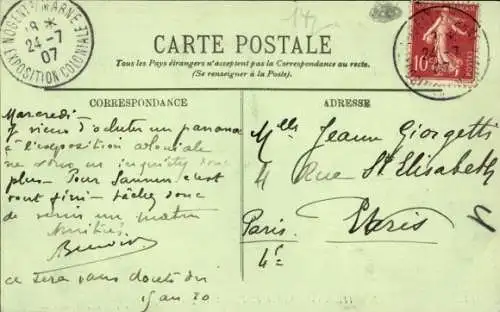 NOGENT S/ MARNE
18 *
24-7
07
EXPOSITION COLONIALE
CARTE POSTALE
Tous les Pays étrangers n'acceptent pas la Correspondance au recto.
(Se renseigner à la Poste).
CORRESPONDANCE
Mercredi -
Je viens d'acheter un panama
à l'exposition coloniale
ne vous en inquiétez donc
plus - Pour c'est
tout fini - tâchez donc
de venir un matin
Amitiés
Benoit
ce sera sans doute du
15 au 20
ADRESSE
Melle Jeanne Giorgetti
4 Rue Ste Elisabeth
Paris. Paris
4e
10